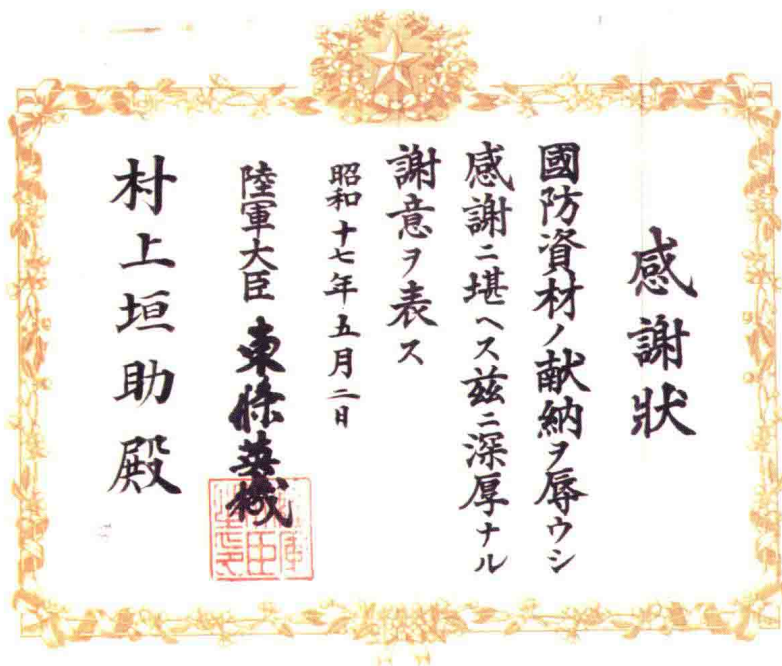 感謝狀
國防資材ノ献納ヲ辱ウシ
感謝ニ堪ヘス茲ニ深厚ナル
謝意ヲ表ス
昭和十七年五月二日
陸軍大臣 東條英機
村上垣助殿